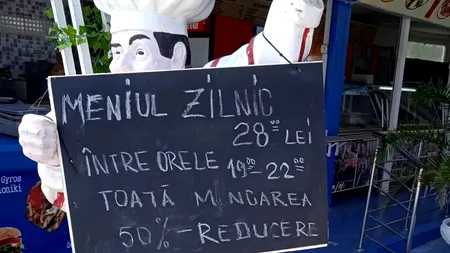 MENIUL ZILNIC
28⁰⁰ LEI
ÎNTRE ORELE 19⁰⁰ 22⁰⁰
TOATĂ MÎNCAREA
50% - REDUCERE
Gyros